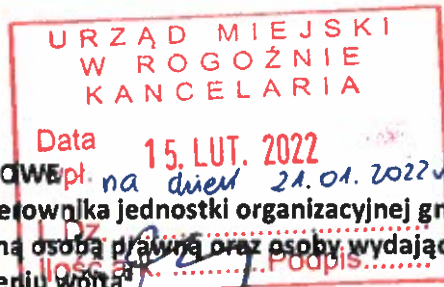 URZĄD MIEJSKI
W ROGOŹNIE
KANCELARIA
Data
wpł. 15. LUT. 2022
OWE na dzień 21.01.2022r
kierownika jednostki organizacyjnej gm
ną osobą prawną oraz osoby wydając
L.Dz.
Ilość zał. Podpis
eniu wójta